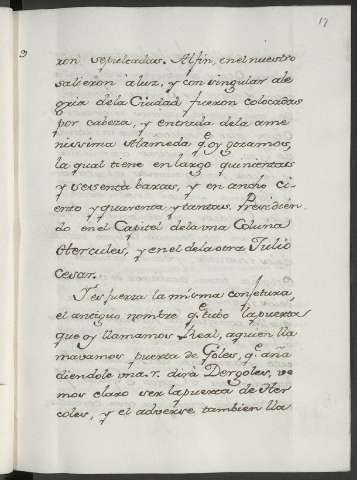 17
ron sepultadas. Alfin, en el nuestro
salieron à luz, y con singular ale
gria de la Ciudad fueron colocadas
por cabeza, y entrada de la ame
nissima Alameda q.e oy gozamos,
la qual tiene en largo quinientas
y sesenta baras, y en ancho ci
ento y quarenta y tantas. Presidien
do en el Capitel de la vna Coluna
Hercules, y en el de la otra Julio
Cesar.
Y esfuerza la misma conjetura,
el antiguo nombre q.e tubo la puerta
que oy llamamos Real, a quien lla
mavamos puerta de Goles, q.e aña
diendole vna r. dirà Dergoles, ve
mos claro ser la puerta de Her
coles, y el adverse tambien lla